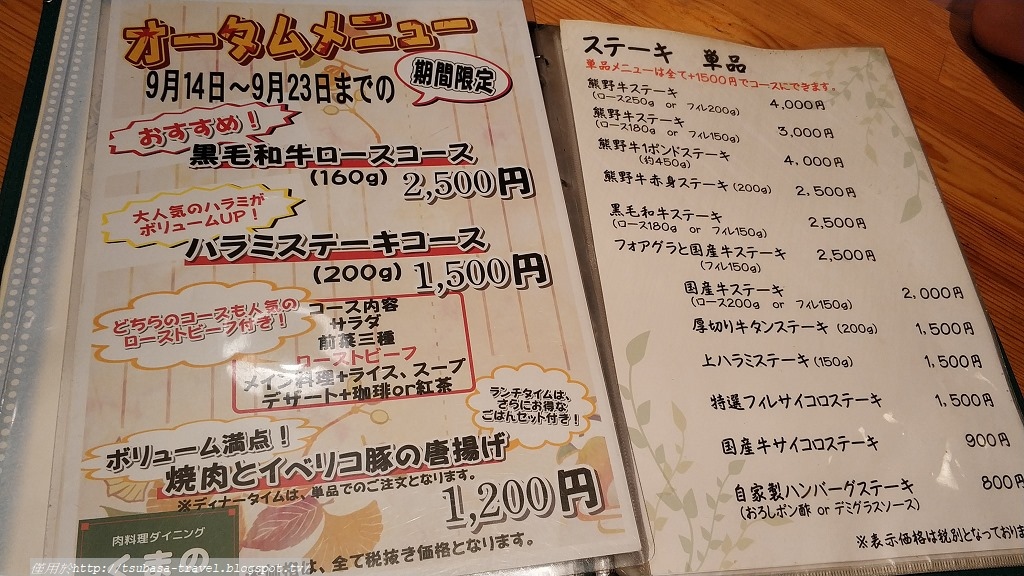 オータムメニュー
9月14日～9月23日までの
期間限定
おすすめ！
黒毛和牛ロースコース
(160g) 2,500円
大人気のハラミが
ボリュームUP！
ハラミステーキコース
(200g) 1,500円
どちらのコースも人気の
ローストビーフ付き！
コース内容
サラダ
前菜三種
ローストビーフ
メイン料理+ライス、スープ
デザート+珈琲or紅茶
ランチタイムは、
さらにお得な
ごはんセット付き！
ボリューム満点！
焼肉とイベリコ豚の唐揚げ
※ディナータイムは、単品でのご注文となります。
1,200円
肉料理ダイニング
は、全て税抜き価格となります。
http://tsubasa-travel.blogspot.tw
ステーキ 単品
単品メニューは全て+1500円でコースにできます。
熊野牛ステーキ 4,000円
(ロース250g or フィレ200g)
熊野牛ステーキ 3,000円
(ロース180g or フィレ150g)
熊野牛1ポンドステーキ 4,000円
(約450g)
熊野牛赤身ステーキ(200g) 2,500円
黒毛和牛ステーキ 2,500円
(ロース180g or フィレ150g)
フォアグラと国産牛ステーキ 2,500円
(フィレ150g)
国産牛ステーキ 2,000円
(ロース200g or フィレ150g)
厚切り牛タンステーキ(200g) 1,500円
上ハラミステーキ(150g) 1,500円
特選フィレサイコロステーキ 1,500円
国産牛サイコロステーキ 900円
自家製ハンバーグステーキ 800円
(おろしポン酢 or デミグラスソース)
※表示価格は税別となっておりま